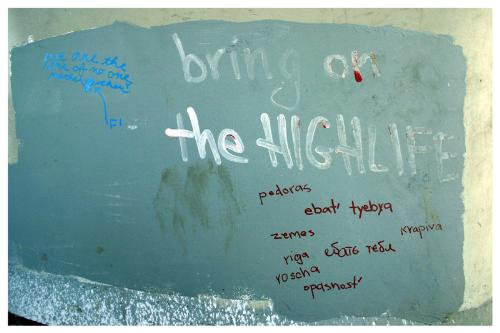 bring on
the HIGHLIFE
we are the
no one
F1
pedoras
ebat' tyebya
zemes
krapiva
riga ебать тебя
roscha
opasnost'